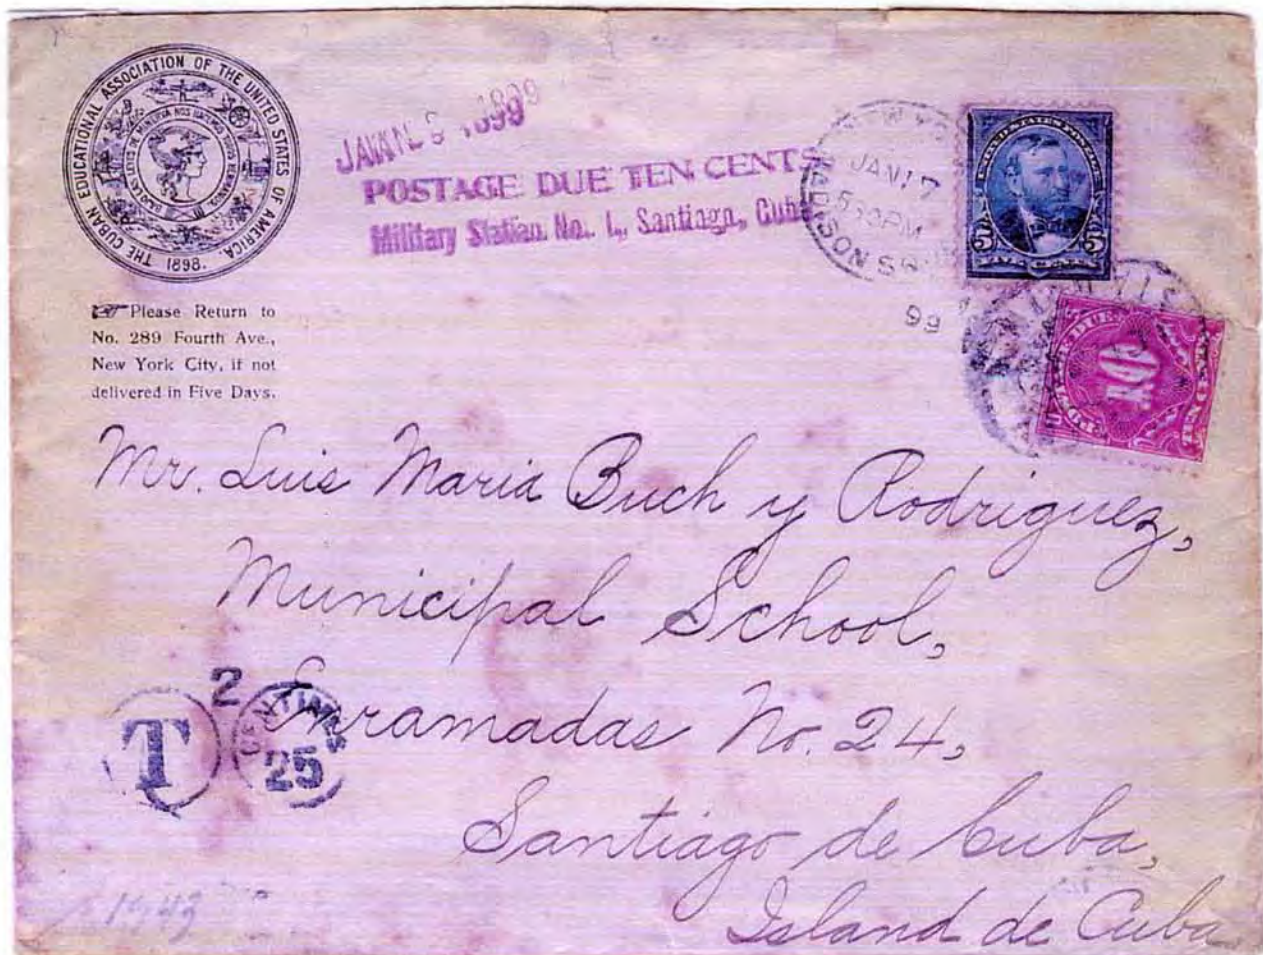 THE CUBAN EDUCATIONAL ASSOCIATION OF THE UNITED STATES OF AMERICA.
1898.
Please Return to
No. 289 Fourth Ave.,
New York City, if not
delivered in Five Days.
1899
POSTAGE DUE TEN CENTS
Military Station No. 1, Santiago, Cuba
NEW YORK
JAN 17
5 30 PM
MADISON SQ
99
UNITED STATES POSTAGE
5 5
FIVE CENTS
POSTAGE DUE
10
TEN CENTS
Mr. Luis Maria Buch y Rodriguez,
Municipal School,
Enramadas No. 24,
Santiago de Cuba,
Island de Cuba
2
T
CENTIMES
25